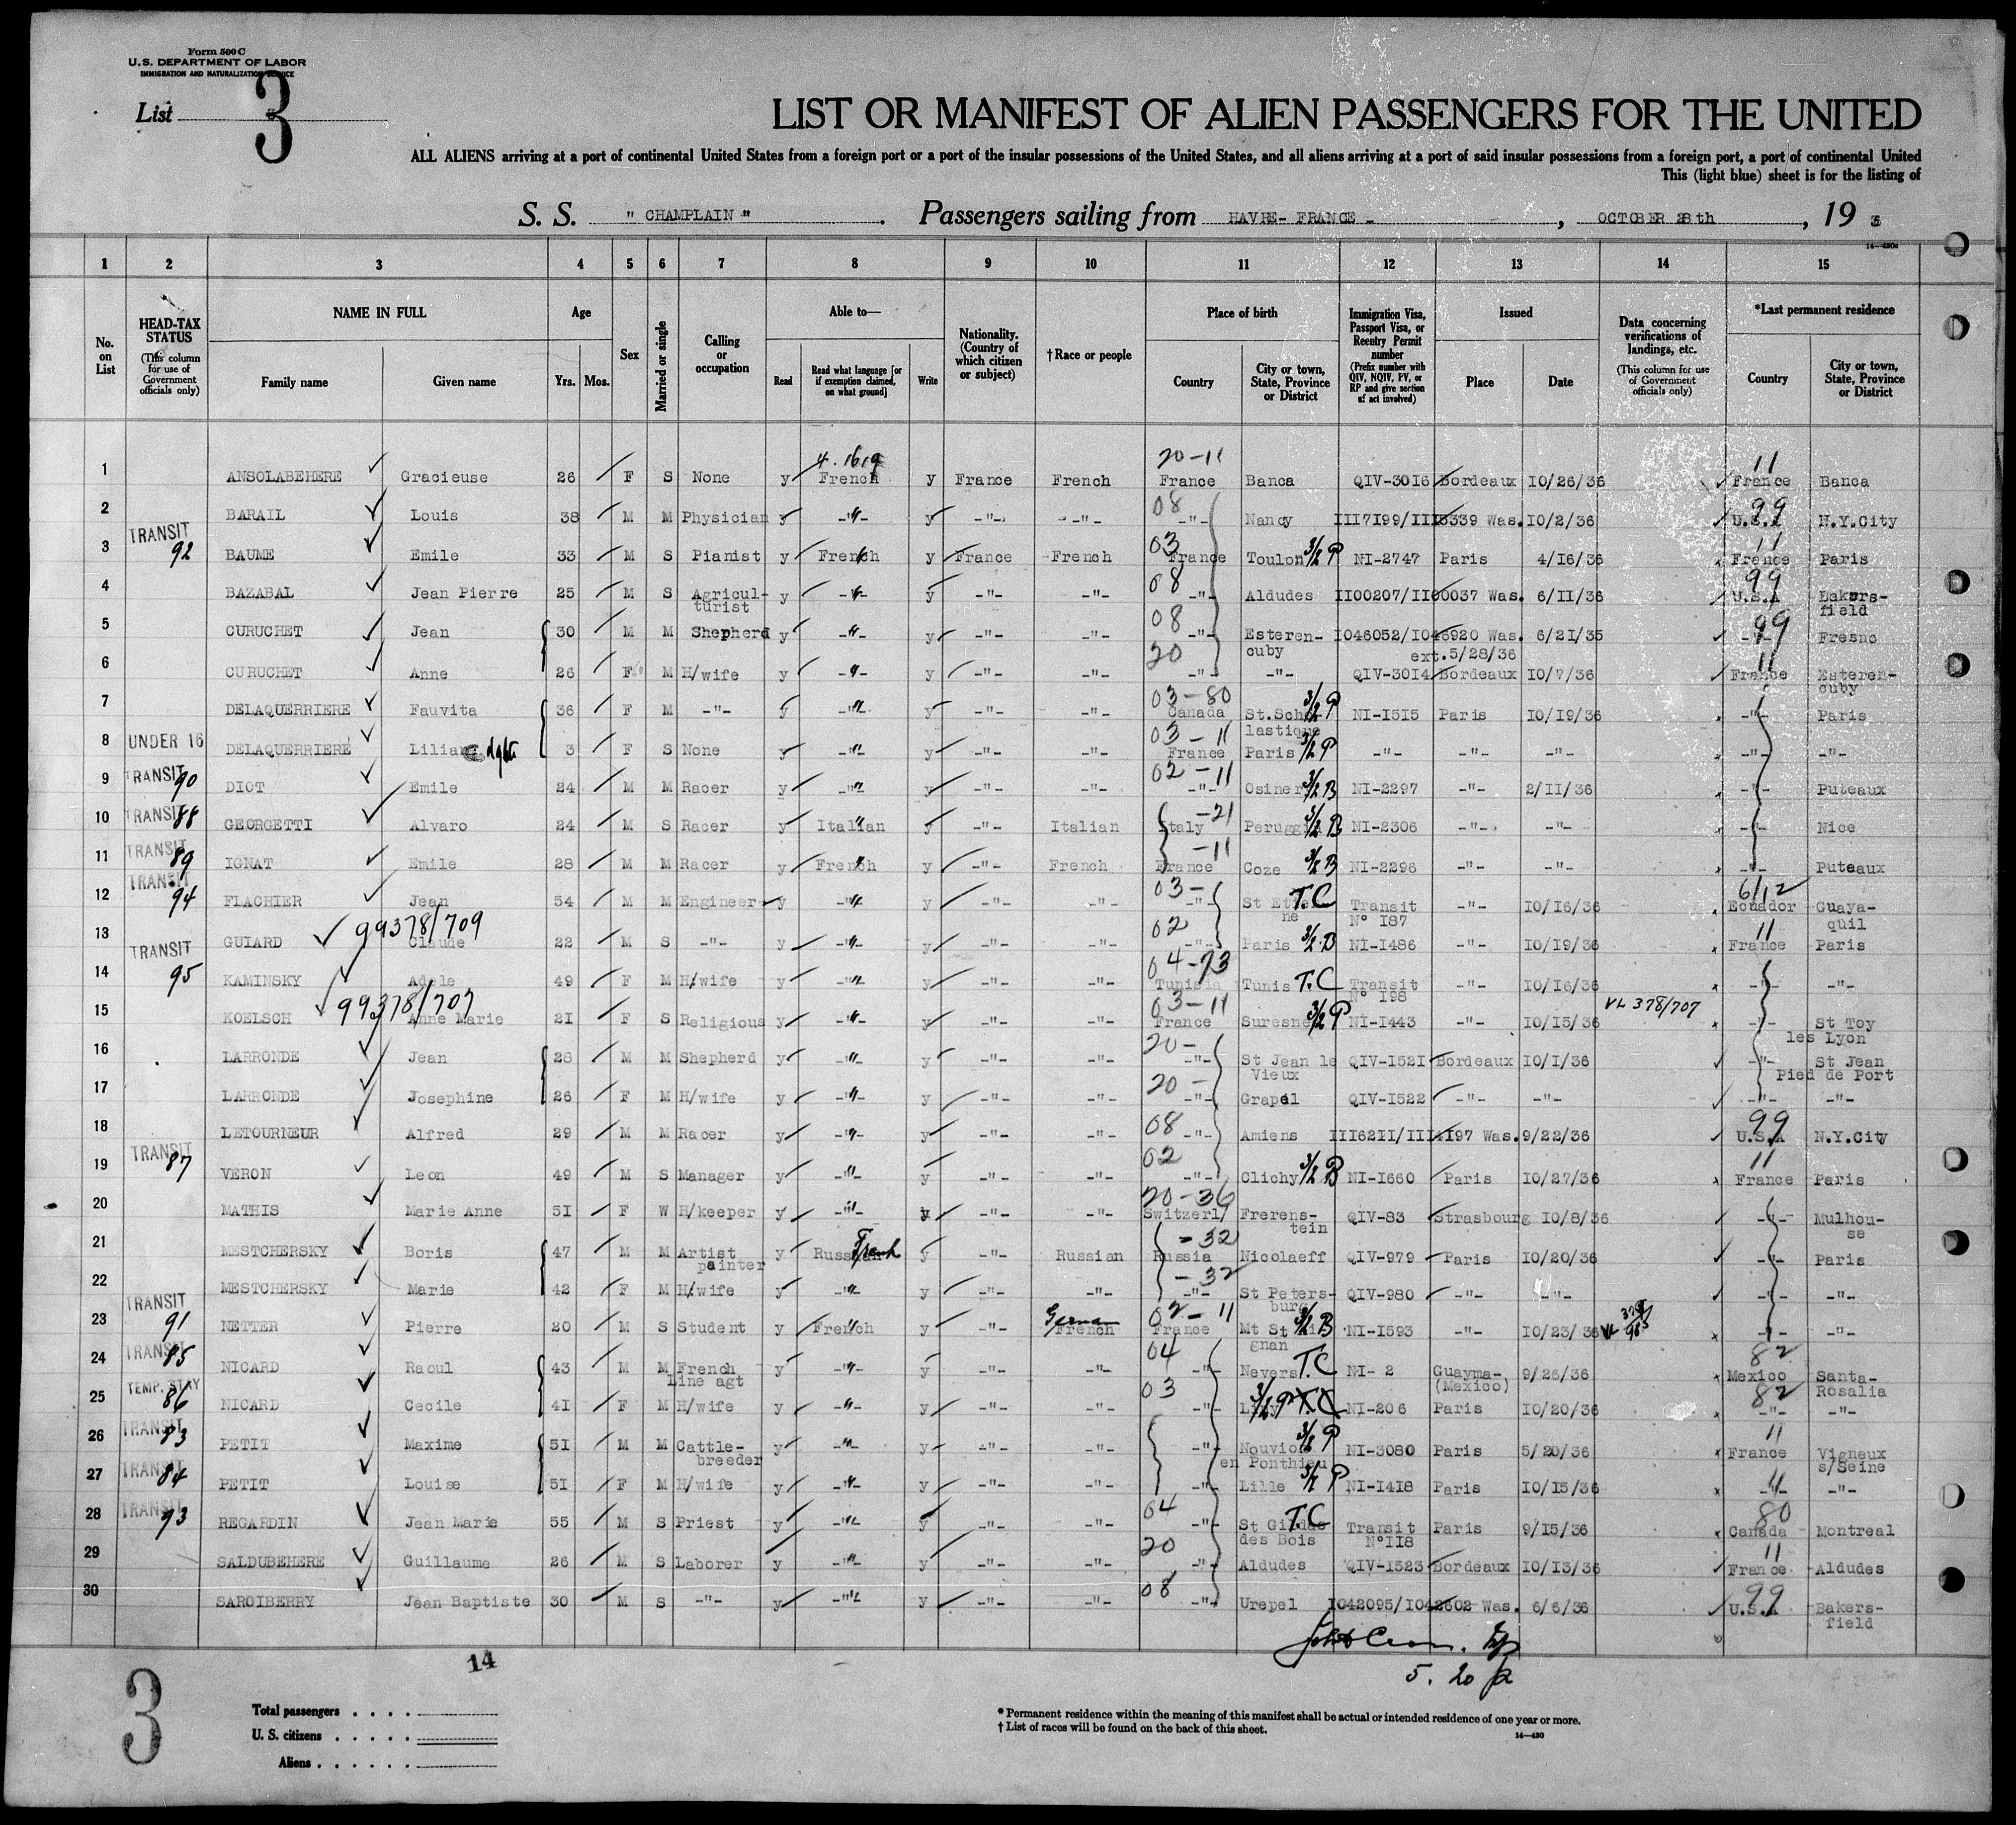 Form 500 C
U. S. DEPARTMENT OF LABOR
IMMIGRATION AND NATURALIZATION SERVICE
List 3
LIST OR MANIFEST OF ALIEN PASSENGERS FOR THE UNITED
ALL ALIENS arriving at a port of continental United States from a foreign port or a port of the insular possessions of the United States, and all aliens arriving at a port of said insular possessions from a foreign port, a port of continental United
This (light blue) sheet is for the listing of
S. S. " CHAMPLAIN " . Passengers sailing from HAVRE- FRANCE - , OCTOBER 28th , 19 3
14—430a
1 2 3 4 5 6 7 8 9 10 11 12 13 14 15
No. on List
HEAD-TAX STATUS (This column for use of Government officials only)
NAME IN FULL
Family name Given name
Age
Yrs. Mos.
Sex
Married or single
Calling or occupation
Able to—
Read Read what language [or if exemption claimed, on what ground] Write
Nationality. (Country of which citizen or subject)
†Race or people
Place of birth
Country City or town, State, Province or District
Immigration Visa, Passport Visa, or Reentry Permit number (Prefix number with QIV, NQIV, PV, or RP and give section of act involved)
Issued
Place Date
Data concerning verifications of landings, etc. (This column for use of Government officials only)
*Last permanent residence
Country City or town, State, Province or District
4. 1619 20-11 11
1 ANSOLABEHERE Gracieuse 26 F S None y French y France French France Banca QIV-3016 Bordeaux 10/26/36 France Banca
08 99
2 BARAIL Louis 38 M M Physician y -"- y -"- -"- -"- Nancy III7199/III3339 Was. 10/2/36 U.S.A N.Y.City
TRANSIT 92 03 11
3 BAUME Emile 33 M S Pianist y French y France French France Toulon 3/2 P NI-2747 Paris 4/16/36 France Paris
08 99
4 BAZABAL Jean Pierre 25 M S Agricul-turist y -"- y -"- -"- -"- Aldudes II00207/II00037 Was. 6/11/36 U.S.A Bakers-field
08 99
5 CURUCHET Jean 30 M M Shepherd y -"- y -"- -"- -"- Esteren-cuby 1046052/1046920 Was. 6/21/35 -"- Fresno
ext. 5/28/36
20 11
6 CURUCHET Anne 26 F M H/wife y -"- y -"- -"- -"- -"- QIV-3014 Bordeaux 10/7/36 France Esteren-cuby
03-80
7 DELAQUERRIERE Fauvita 36 F M -"- y -"- y -"- -"- Canada St.Scho-lastique 3/2 P NI-1515 Paris 10/19/36 -"- Paris
03-11
8 UNDER 16 DELAQUERRIERE Liliane dghtr 3 F S None y -"- y -"- -"- France Paris 3/2 P -"- -"- -"- -"- -"-
02-11
9 TRANSIT 90 DIOT Emile 24 M M Racer y -"- y -"- -"- -"- Osiner 3/2 B NI-2297 -"- 2/11/36 -"- Puteaux
-21
10 TRANSIT 88 GEORGETTI Alvaro 24 M S Racer y Italian y -"- Italian Italy Peruggia 3/2 B NI-2306 -"- -"- -"- Nice
-11
11 TRANSIT 89 IGNAT Emile 28 M M Racer y French y -"- French France Coze 3/2 B NI-2296 -"- -"- -"- Puteaux
03- 61/12
12 TRANSIT 94 FLACHIER Jean 54 M M Engineer y -"- y -"- -"- -"- St Etienne T.C Transit N° 187 -"- 10/16/36 Ecuador Guaya-quil
99378/709 02 11
13 GUIARD Claude 22 M S -"- y -"- y -"- -"- -"- Paris 3/2 B NI-1486 -"- 10/19/36 France Paris
04-73
14 TRANSIT 95 KAMINSKY Adele 49 F M H/wife y -"- y -"- -"- Tunisia Tunis T.C Transit N° 198 -"- 10/16/36 -"- -"-
99378/707 03-11
15 KOELSCH Anne Marie 21 F S Religious y -"- y -"- -"- France Suresnes 3/2 P NI-1443 -"- 10/15/36 VL 378/707 -"- St Toy les Lyon
20-
16 LARRONDE Jean 28 M M Shepherd y -"- y -"- -"- -"- St Jean le Vieux QIV-1521 Bordeaux 10/1/36 -"- St Jean Pied de Port
20-
17 LARRONDE Josephine 26 F M H/wife y -"- y -"- -"- -"- Grapel QIV-1522 -"- -"- -"- -"-
08 99
18 LETOURNEUR Alfred 29 M M Racer y -"- y -"- -"- -"- Amiens III6211/III4197 Was. 9/22/36 U.S.A N.Y.City
02 11
19 TRANSIT 87 VERON Leon 49 M S Manager y -"- y -"- -"- -"- Clichy 3/2 B NI-1660 Paris 10/27/36 France Paris
20-36
20 MATHIS Marie Anne 51 F W H/keeper y -"- y -"- -"- Switzerl/ Frerens-tein QIV-83 Strasbourg 10/8/36 -"- Mulhou-se
French -32
21 MESTCHERSKY Boris 47 M M Artist painter y Russian y -"- Russian Russia Nicolaeff QIV-979 Paris 10/20/36 -"- Paris
-32
22 MESTCHERSKY Marie 42 F M H/wife y -"- y -"- -"- -"- St Peters-burg QIV-980 -"- -"- -"- -"-
German 02-11
23 TRANSIT 91 NETTER Pierre 20 M S Student y French y -"- French France Mt St Ai-gnan 3/2 B NI-1593 -"- 10/23/36 -"- -"-
04 82
24 TRANSIT 85 NICARD Raoul 43 M M French Line agt y -"- y -"- -"- -"- Nevers T.C NI- 2 Guayma-(Mexico) 9/26/36 Mexico Santa-Rosalia
03 82
25 TEMP. STAY 86 NICARD Cecile 41 F M H/wife y -"- y -"- -"- -"- 3/2 P T.C NI-206 Paris 10/20/36 -"- -"-
11
26 TRANSIT 83 PETIT Maxime 51 M M Cattle-breeder y -"- y -"- -"- -"- Nouvion en Ponthieu 3/2 P NI-3080 Paris 5/20/36 France Vigneux s/Seine
27 TRANSIT 84 PETIT Louise 51 F M H/wife y -"- y -"- -"- -"- Lille 3/2 P NI-1418 Paris 10/15/36 -"- -"-
04 80
28 TRANSIT 93 REGARDIN Jean Marie 55 M S Priest y -"- y -"- -"- -"- St Gildas des Bois T.C Transit N°118 Paris 9/15/36 Canada Montreal
20 11
29 SALDUBEHERE Guillaume 26 M S Laborer y -"- y -"- -"- -"- Aldudes QIV-1523 Bordeaux 10/13/36 France Aldudes
08 99
30 SAROIBERRY Jean Baptiste 30 M S -"- y -"- y -"- -"- -"- Urepel 1042095/1042602 Was. 6/6/36 U.S.A Bakers-field
5. 20 p
14
3
Total passengers . . . .
U. S. citizens . . . . .
Aliens . . . . . .
* Permanent residence within the meaning of this manifest shall be actual or intended residence of one year or more.
† List of races will be found on the back of this sheet.
14—430